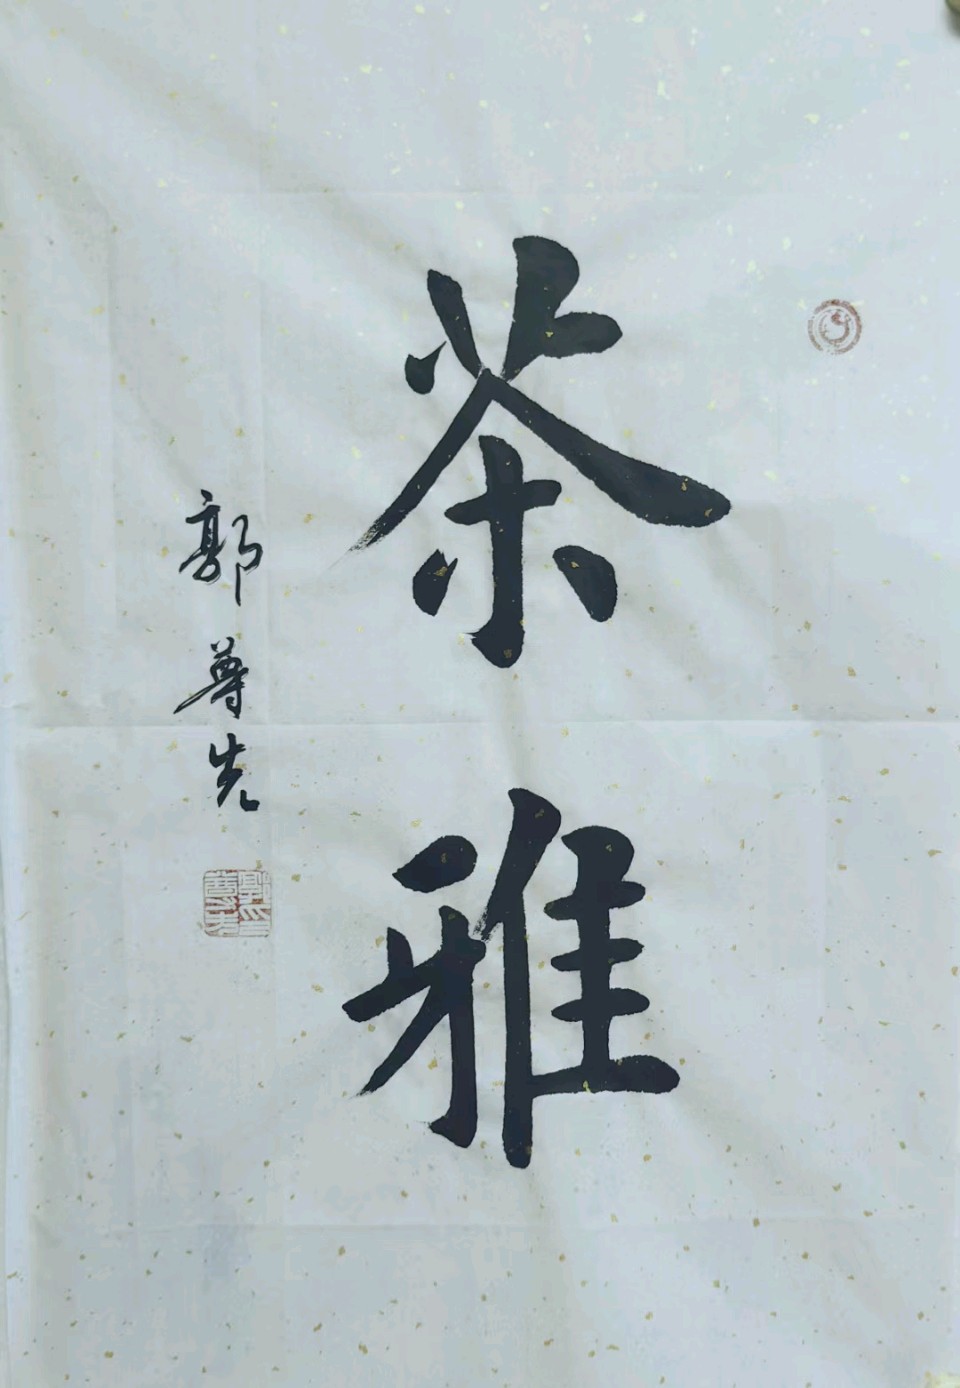 茶雅
郭尊先